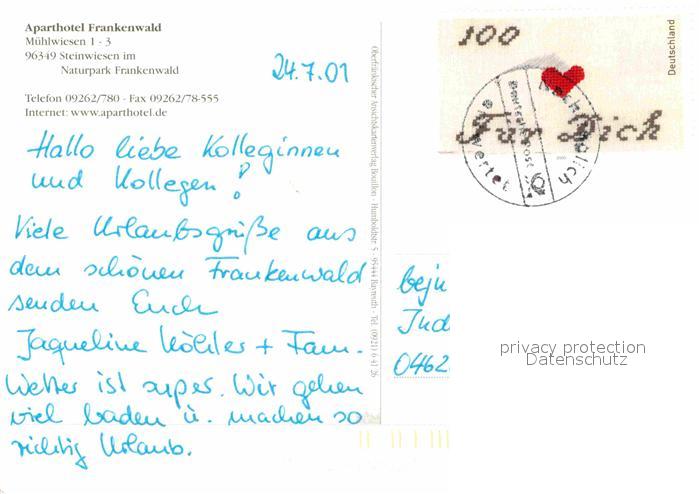 Aparthotel Frankenwald
Mühlwiesen 1 - 3
96349 Steinwiesen im
Naturpark Frankenwald
Telefon 09262/780 - Fax 09262/78-555
Internet: www.aparthotel.de
24.7.01
Hallo liebe Kolleginnen
und Kollegen!
Viele Urlaubsgrüße aus
dem schönen Frankenwald
senden Euch
Jaqueline Köhler + Fam.
Wetter ist super. Wir gehen
viel baden u. machen so
richtig Urlaub.
Oberfränkischer Ansichtskartenverlag Bouillon - Humboldtstr. 5 - 95444 Bayreuth - Tel. (0921) 6 41 26
100
Für Dich
Deutschland
Nachträglich
entwertet
Deutsche Post
bejn
Ind
0462
privacy protection
Datenschutz